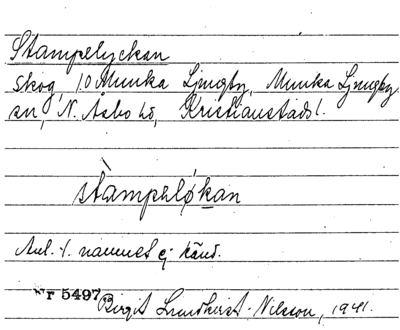 Stampelyckan
skog, 10 Munka Ljungby, Munka Ljungby
sn, N. Åsbo hd, Kristianstads l.
stàmpeløkan
Anl. t. namnet ej känd.
Nr 5497 Birgit Lundkvist-Nilsson, 1941.